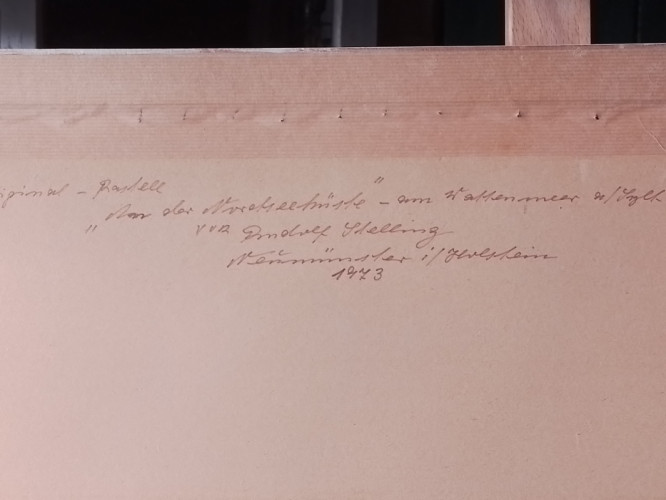 iginal - Pastell
"An der Nordseeküste" - am Wattenmeer a/Sylt
von Rudolf Stelling
Neumünster i/Holstein
1973